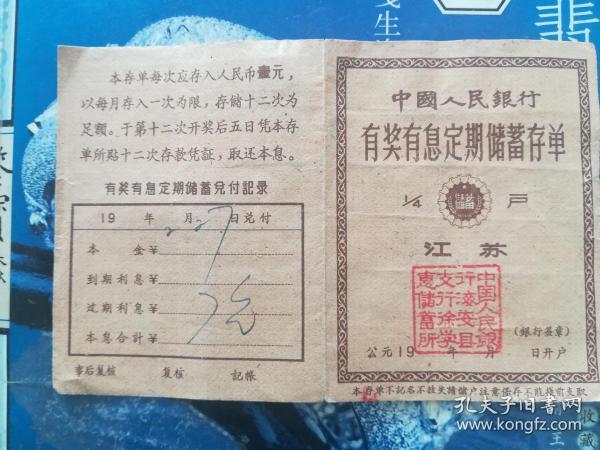 本存单每次应存入人民币壹元，
以每月存入一次为限，存储十二次为
足额。于第十二次开奖后五日凭本存
单所點十二次存款凭証，取还本息。
有奖有息定期储蓄兑付記录
19 年 月 日兑付
本金￥
到期利息￥
过期利息￥
本息合計￥
事后复核 复核 記帐
中國人民銀行
有奖有息定期儲蓄存单
1/4 儲蓄 戶
江苏
中国人民銀
行淩安县
支行徐学
惠儲蓄所
(銀行签章)
公元19 年 月 日开户
本存单不記名不挂失請儲户注意保存不能提前支取
孔夫子旧书网
www.kongfz.com
收藏
王
翡
生